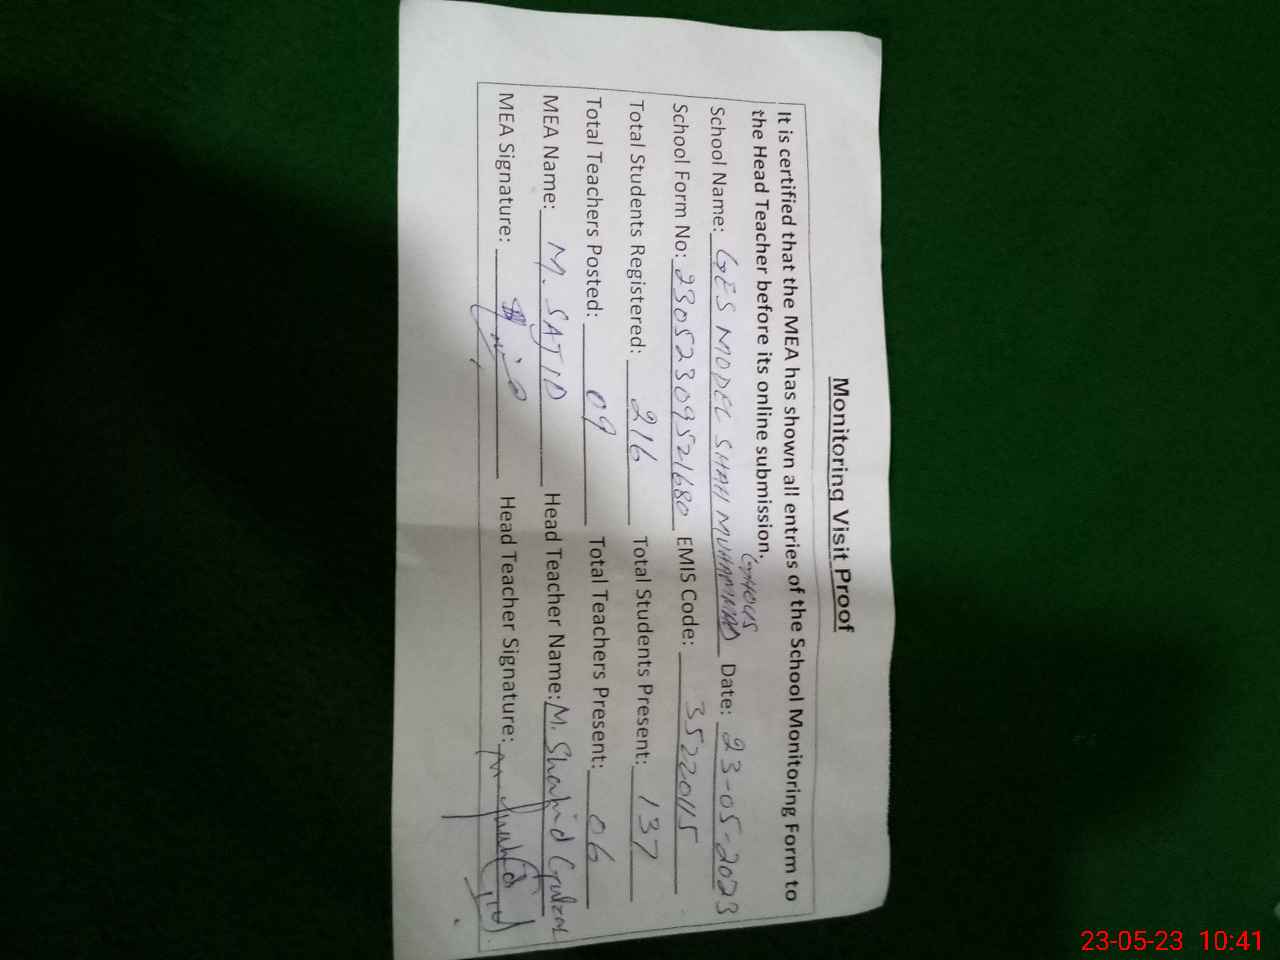 Monitoring Visit Proof
It is certified that the MEA has shown all entries of the School Monitoring Form to
the Head Teacher before its online submission.
School Name: GES MODEL SHAH MUHAMMAD GHOUS Date: 23-05-2023
School Form No: 23052309521680 EMIS Code: 35220115
Total Students Registered: 216 Total Students Present: 137
Total Teachers Posted: 09 Total Teachers Present: 06
MEA Name: M. SAJID Head Teacher Name: M. Shahid Gulzar
MEA Signature: Head Teacher Signature:
23-05-23 10:41